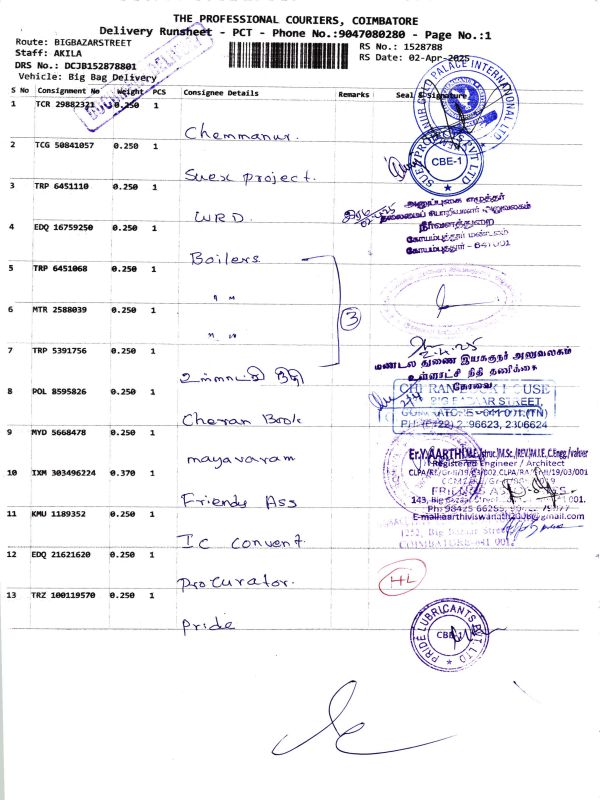 THE PROFESSIONAL COURIERS, COIMBATORE
Delivery Runsheet - PCT - Phone No.:9047080280 - Page No.:1
Route: BIGBAZARSTREET
RS No.: 1528788
Staff: AKILA
RS Date: 02-Apr-2025
DRS No.: DCJB152878801
Vehicle: Big Bag Delivery
S No Consignment No Weight PCS Consignee Details Remarks Seal & Signature
1 TCR 29882321 0.250 1
Chemmanur.
2 TCG 50841057 0.250 1
Suex project.
SUEZ PROJECTS PVT LTD
CBE-1
3 TRP 6451110 0.250 1
WRD.
அனுப்புகை எழுத்தர்
தலைமைப் பொறியாளர் அலுவலகம்
நீர்வளத்துறை
கோயம்புத்தூர் மண்டலம்
கோயம்புத்தூர் - 641001
4 EDQ 16759250 0.250 1
Boilers
5 TRP 6451068 0.250 1
" "
6 MTR 2588039 0.250 1
" "
3
7 TRP 5391756 0.250 1
2-4-25
மண்டல துணை இயக்குநர் அலுவலகம்
உள்ளாட்சி நிதி தணிக்கை
கோவை
உள்ளாட்சி நிதி
8 POL 8595826 0.250 1
Cheran Book
BIG BAZAAR STREET,
9 MYD 5668478 0.250 1
mayavaram
Er.Y.AARTHI
Registered Engineer / Architect
10 IXM 303496224 0.370 1
Friends Ass
143, Big Bazaar Street
E-mail:aarthiviswanath2006@gmail.com
11 KMU 1189352 0.250 1
I.C convent.
12 EDQ 21621620 0.250 1
procurator.
HL
13 TRZ 100119570 0.250 1
pride
PRIDE LUBRICANTS PVT LTD
CBE-1